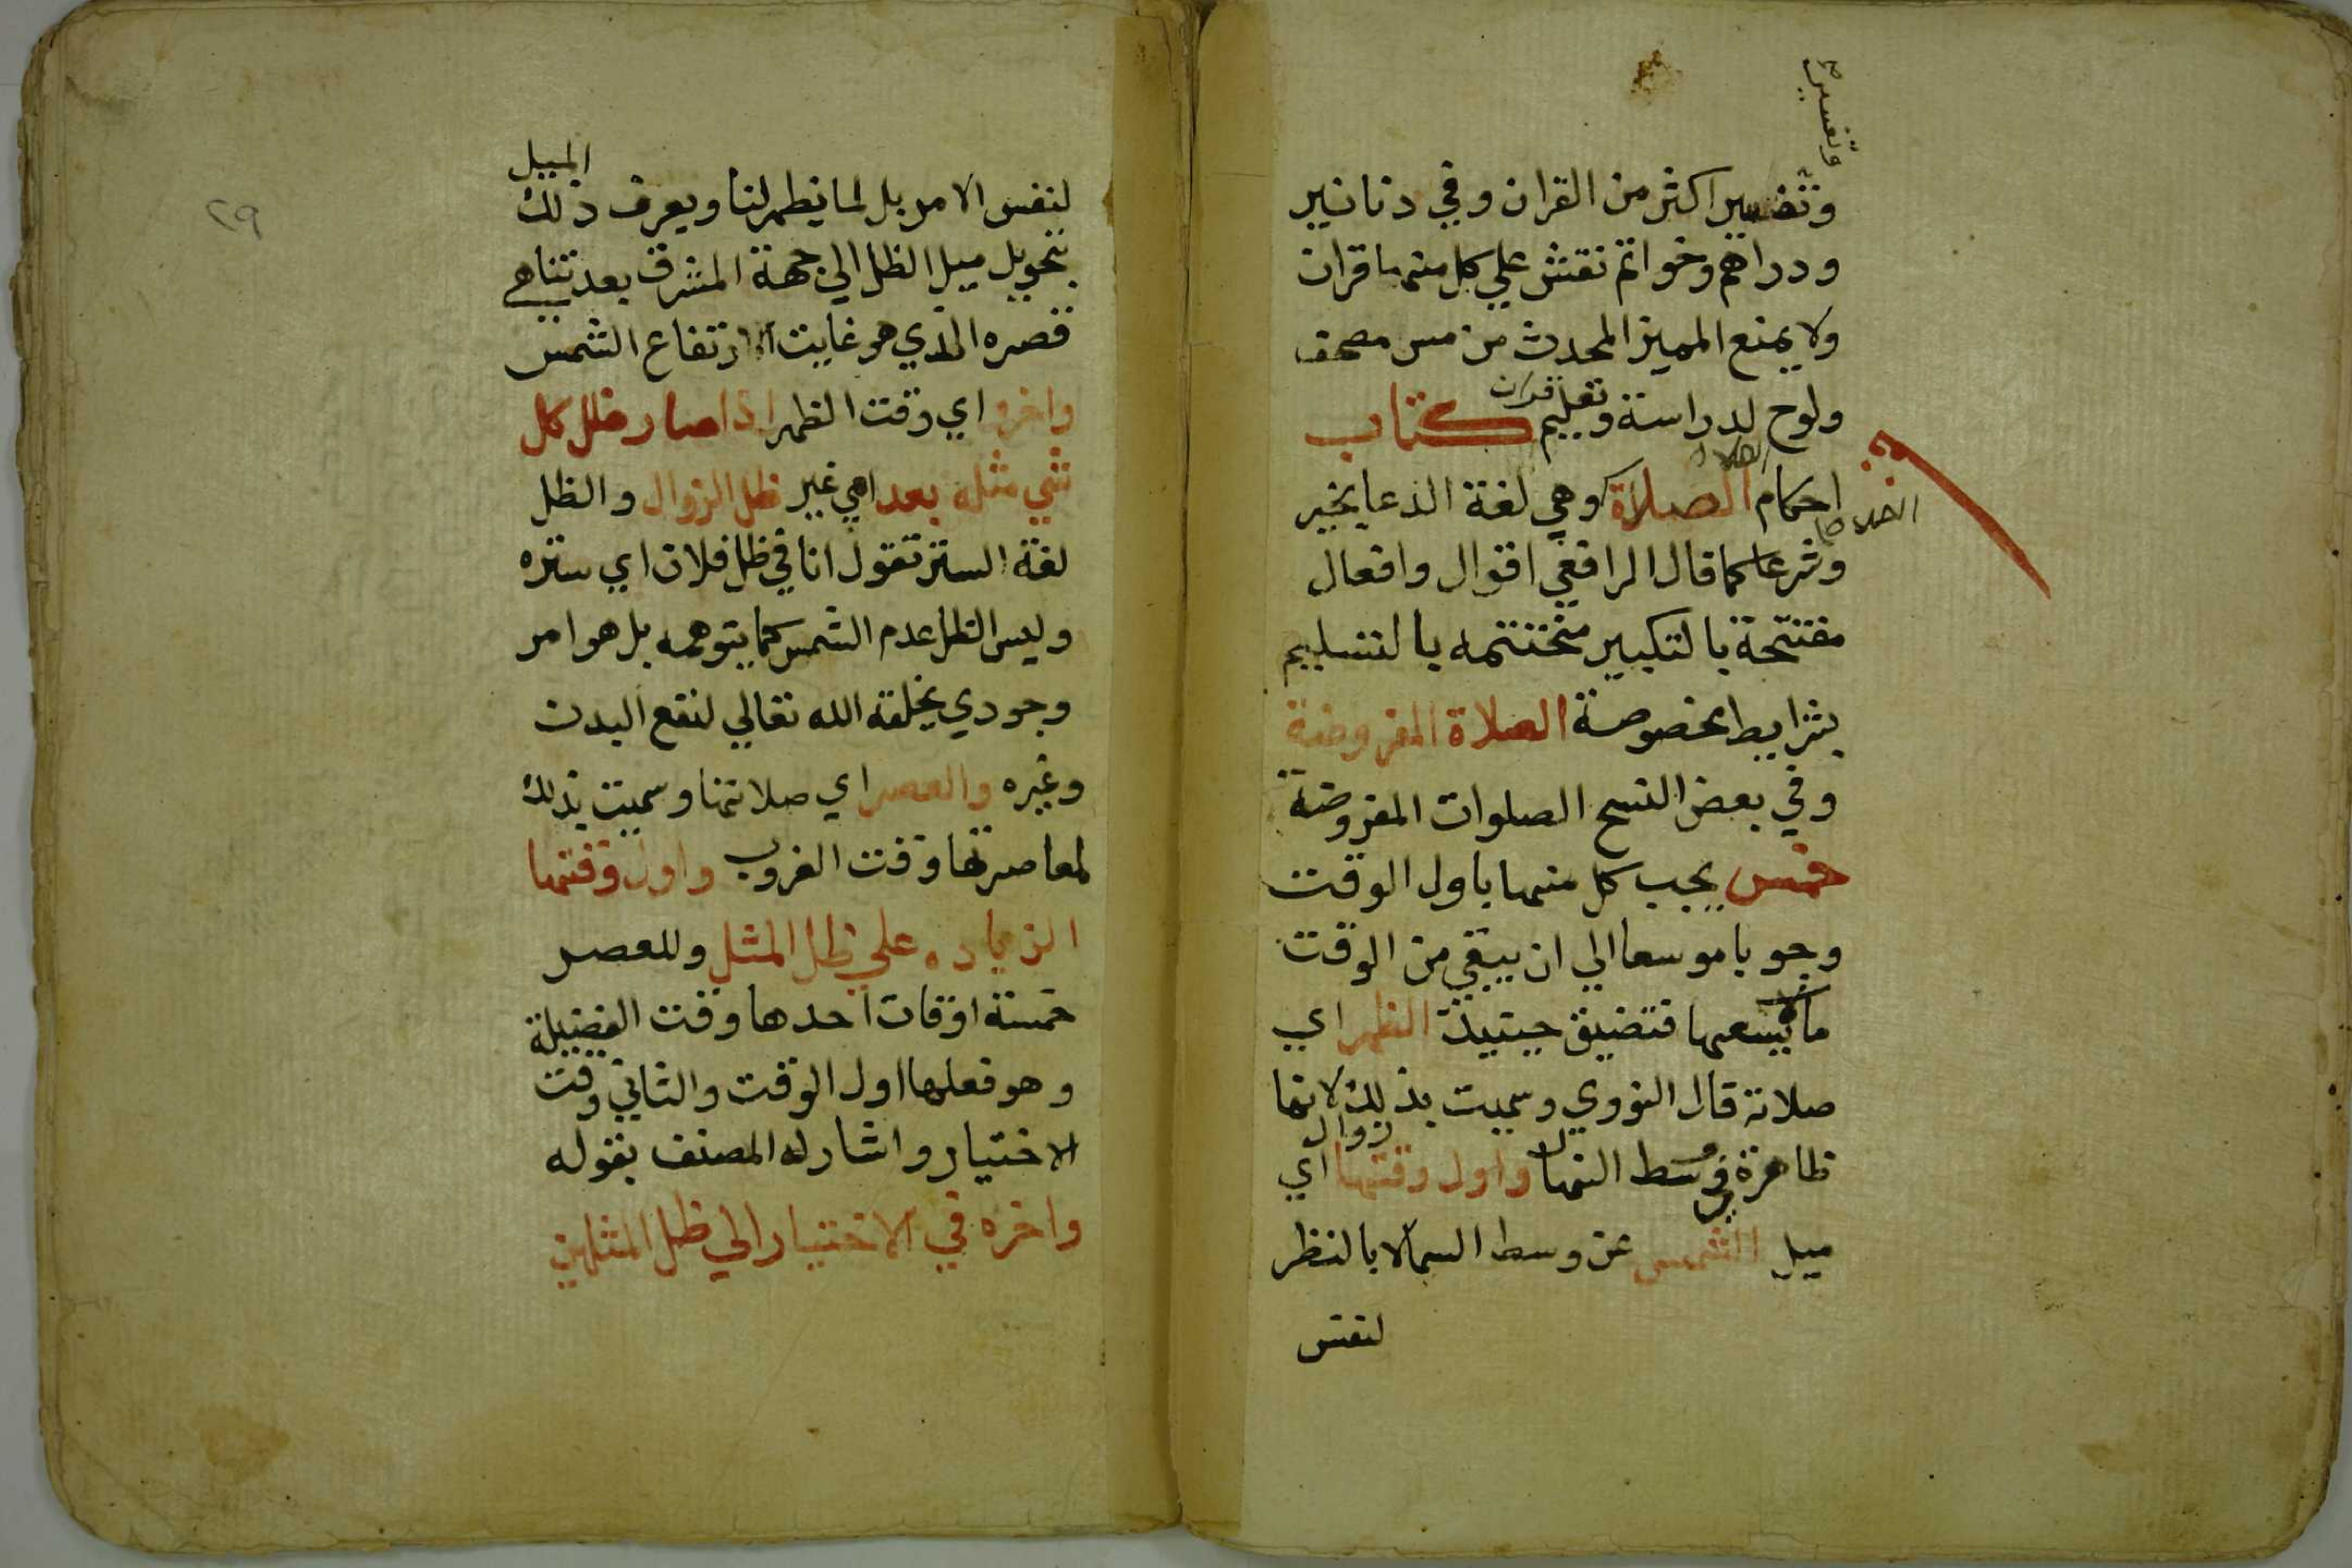 وتفسير
وتفسير اكثر من القران وفي دنانير
ودراهم وخواتم نقش علي كل منها قران
ولا يمنع المميز المحدث من مس مصحف
ولوح لدراسة وتعليم قران كتاب
احكام الصلاة وهي لغة الدعا بخير
وشرعا كما قال الرافعي اقوال وافعال
مفتتحة بالتكبير مختتمه بالتسليم
بشرايط مخصوصة الصلاة المفروضة
وفي بعض النسخ الصلوات المفروضة
خمس يجب كل منها باول الوقت
وجوبا موسعا الي ان يبقي من الوقت
ما يسعها فتضيق حينيذ الظهر اي
صلاته قال النووي وسميت بذلك لانها
ظاهرة في وسط النهار واول وقتها زوال اي
ميل الشمس عن وسط السما لا بالنظر
لنفس
٢٩
لنفس الامر بل لما يظهر لنا ويعرف ذلك الميل
بتحويل ميل الظل الي جهة المشرق بعد تناهي
قصره الذي هو غايت ارتفاع الشمس
واخره اي وقت الظهر اذا صار ظل كل
شي مثله بعد اي غير ظل الزوال والظل
لغة الستر تقول انا في ظل فلان اي ستره
وليس الظل عدم الشمس كما يتوهمه بل هو امر
وجودي يخلقه الله تعالي لنفع البدن
وغيره والعصر اي صلاتها وسميت بذلك
لمعاصرتها وقت الغروب واول وقتها
الزياده علي ظل المثل وللعصر
خمسة اوقات احدها وقت الفضيلة
وهو فعلها اول الوقت والثاني وقت
الاختيار واشار له المصنف بقوله
واخره في الاختيار الي ظل المثلين